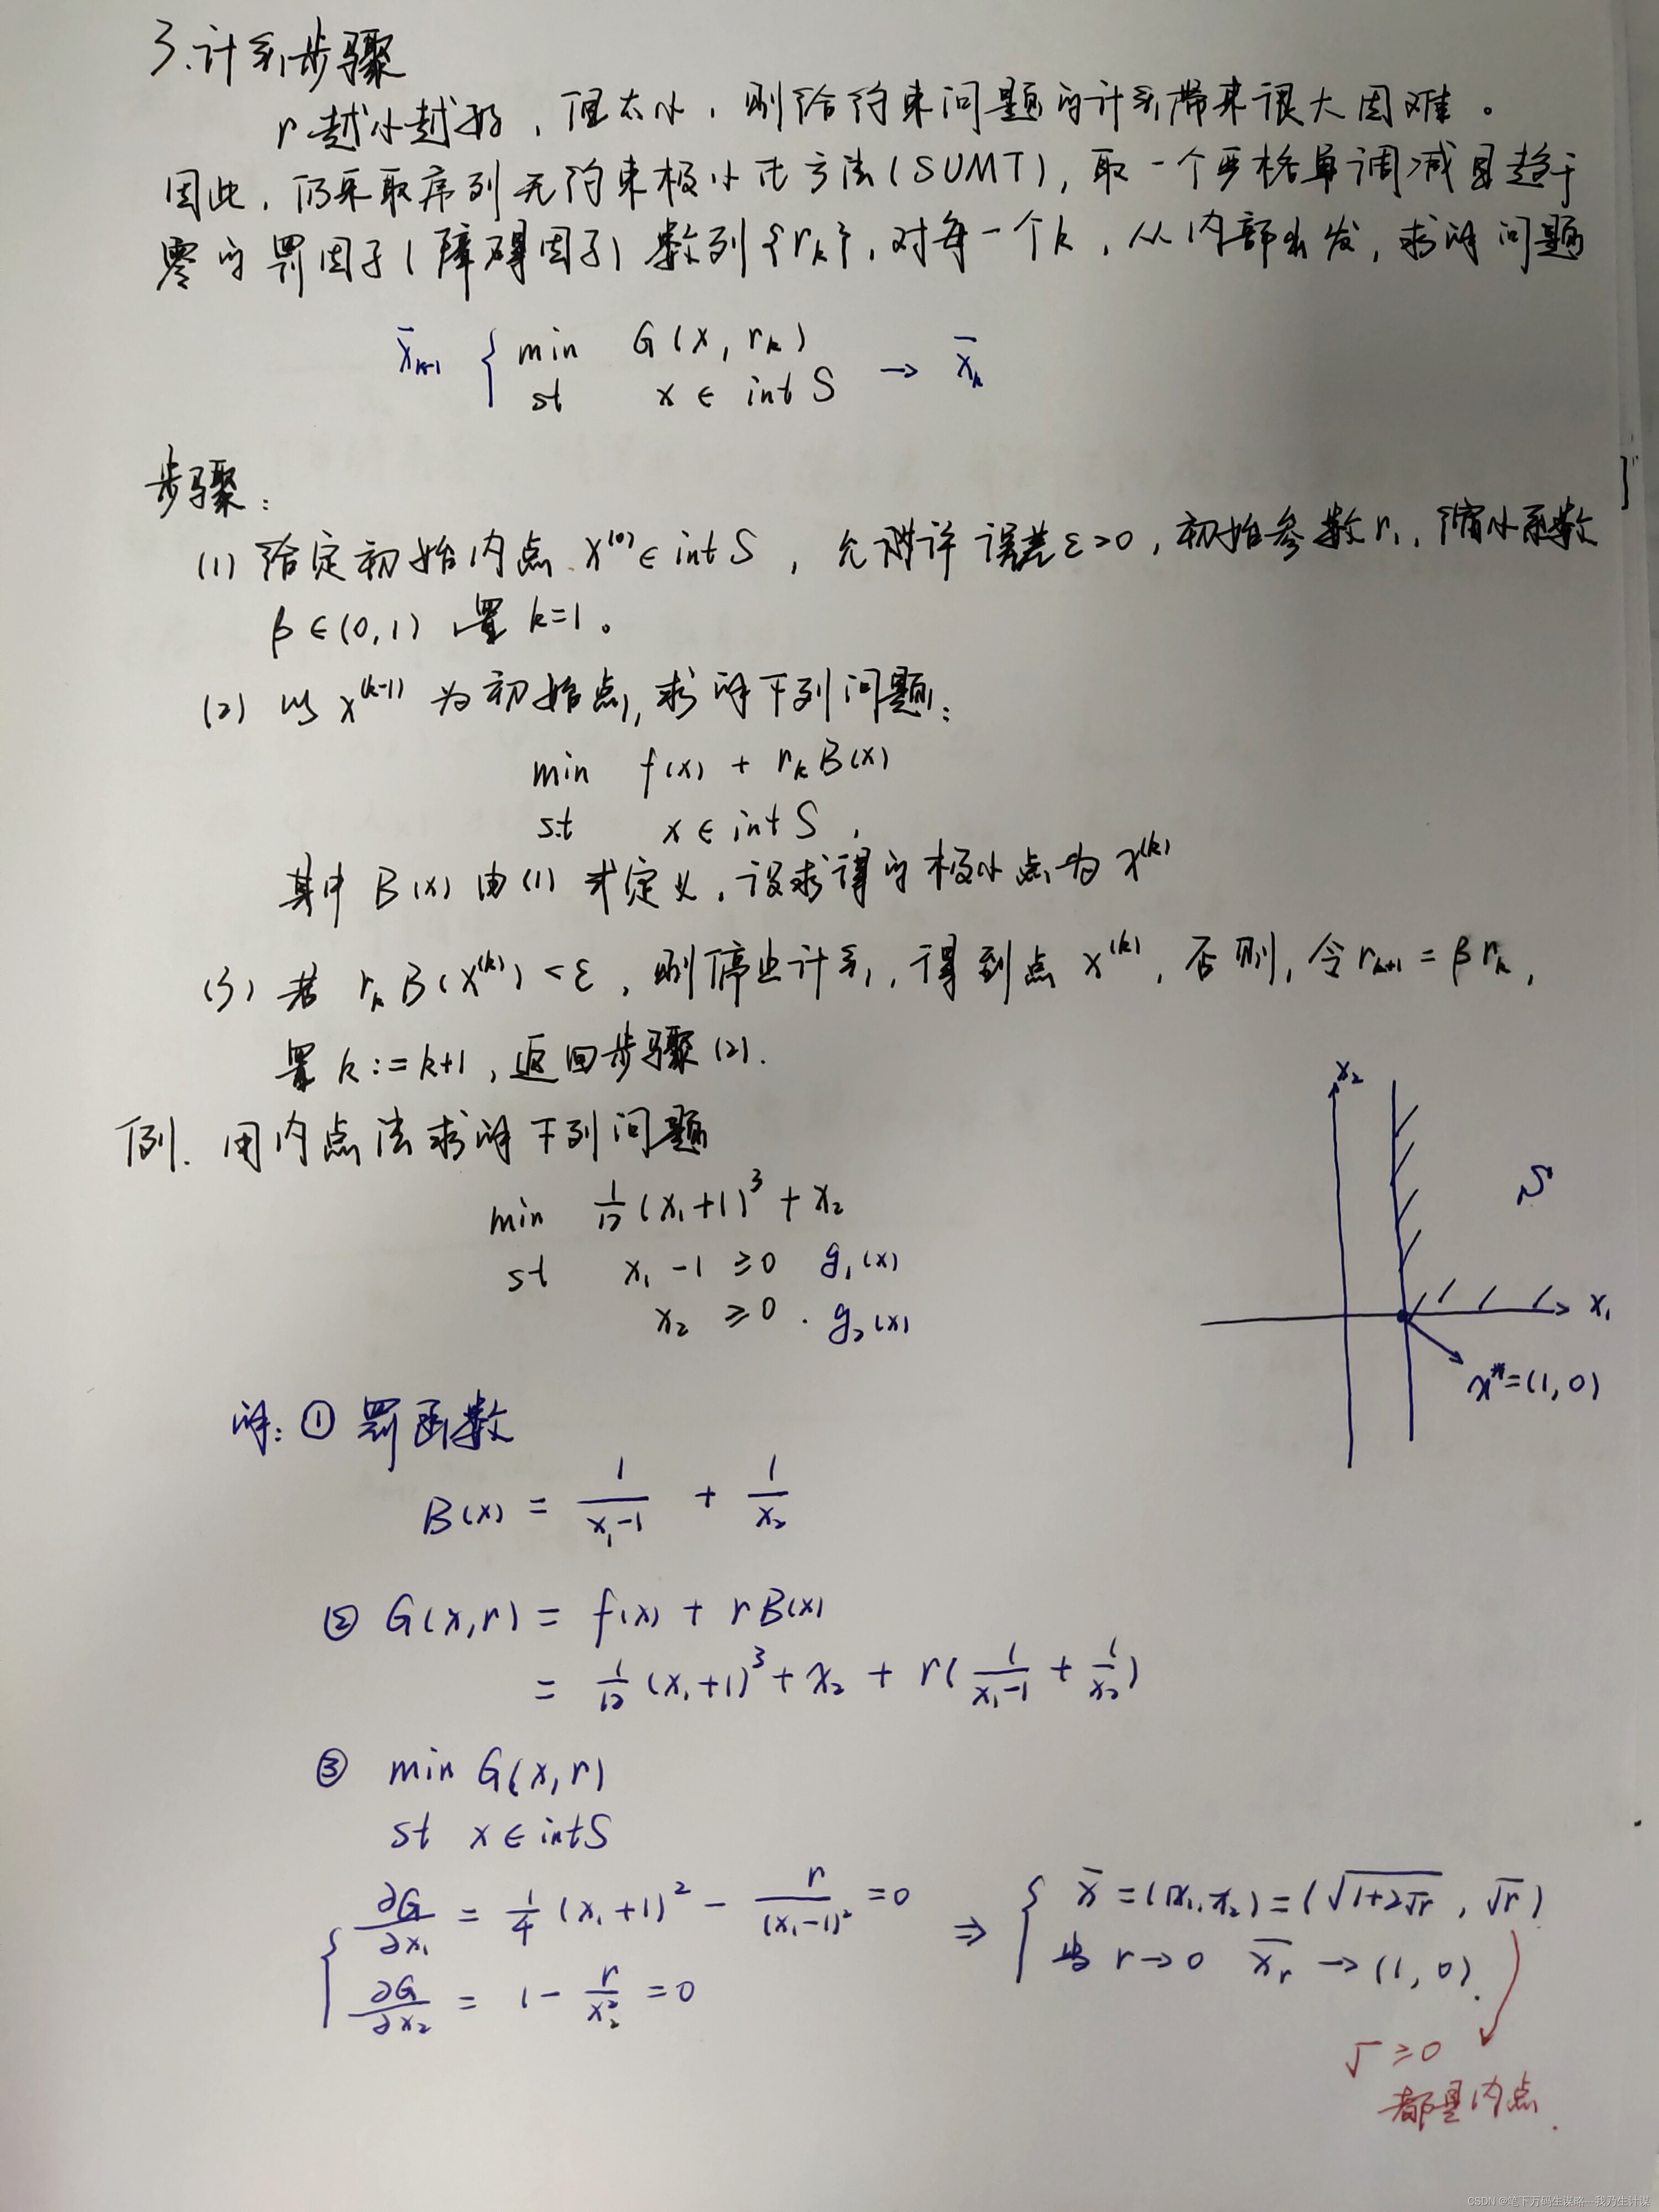 3.计算步骤
r越小越好，但太小，则给约束问题的计算带来很大困难。
因此，仍采取序列无约束极小化方法(SUMT)，取一个严格单调减且趋于
零的罚因子(障碍因子)数列{r_k}，对每一个k，从内部出发，求解问题
x̄_{k-1} { min G(x, r_k)
st x ∈ int S → x̄_k
步骤：
(1) 给定初始内点 x^(0) ∈ int S ，允许误差ε>0，初始参数r_1，缩小系数
β∈(0,1) 置 k=1。
(2) 以 x^(k-1) 为初始点，求解下列问题：
min f(x) + r_k B(x)
s.t x ∈ int S ,
其中 B(x) 由(1) 式定义，设求得的极小点为 x^(k)
(3) 若 r_k B(x^(k)) < ε，则停止计算，得到点 x^(k)，否则，令 r_{k+1} = β r_k，
置 k := k+1，返回步骤(2).
例. 用内点法求解下列问题
min 1/12 (x_1+1)^3 + x_2
st x_1 - 1 ≥ 0 g_1(x)
x_2 ≥ 0 . g_2(x)
x_2
S
x_1
x* = (1, 0)
解：① 罚函数
B(x) = 1/(x_1-1) + 1/x_2
② G(x,r) = f(x) + r B(x)
= 1/12 (x_1+1)^3 + x_2 + r( 1/(x_1-1) + 1/x_2 )
③ min G(x,r)
st x ∈ int S
{ ∂G/∂x_1 = 1/4 (x_1+1)^2 - r/(x_1-1)^2 = 0
∂G/∂x_2 = 1 - r/x_2^2 = 0
⇒ { x̄ = (x_1, x_2) = (√(1+2√r), √r)
当 r→0 x̄_r → (1, 0).
√ ≥ 0
都是内点.
CSDN @笔下万码生谋略---我乃生计谋